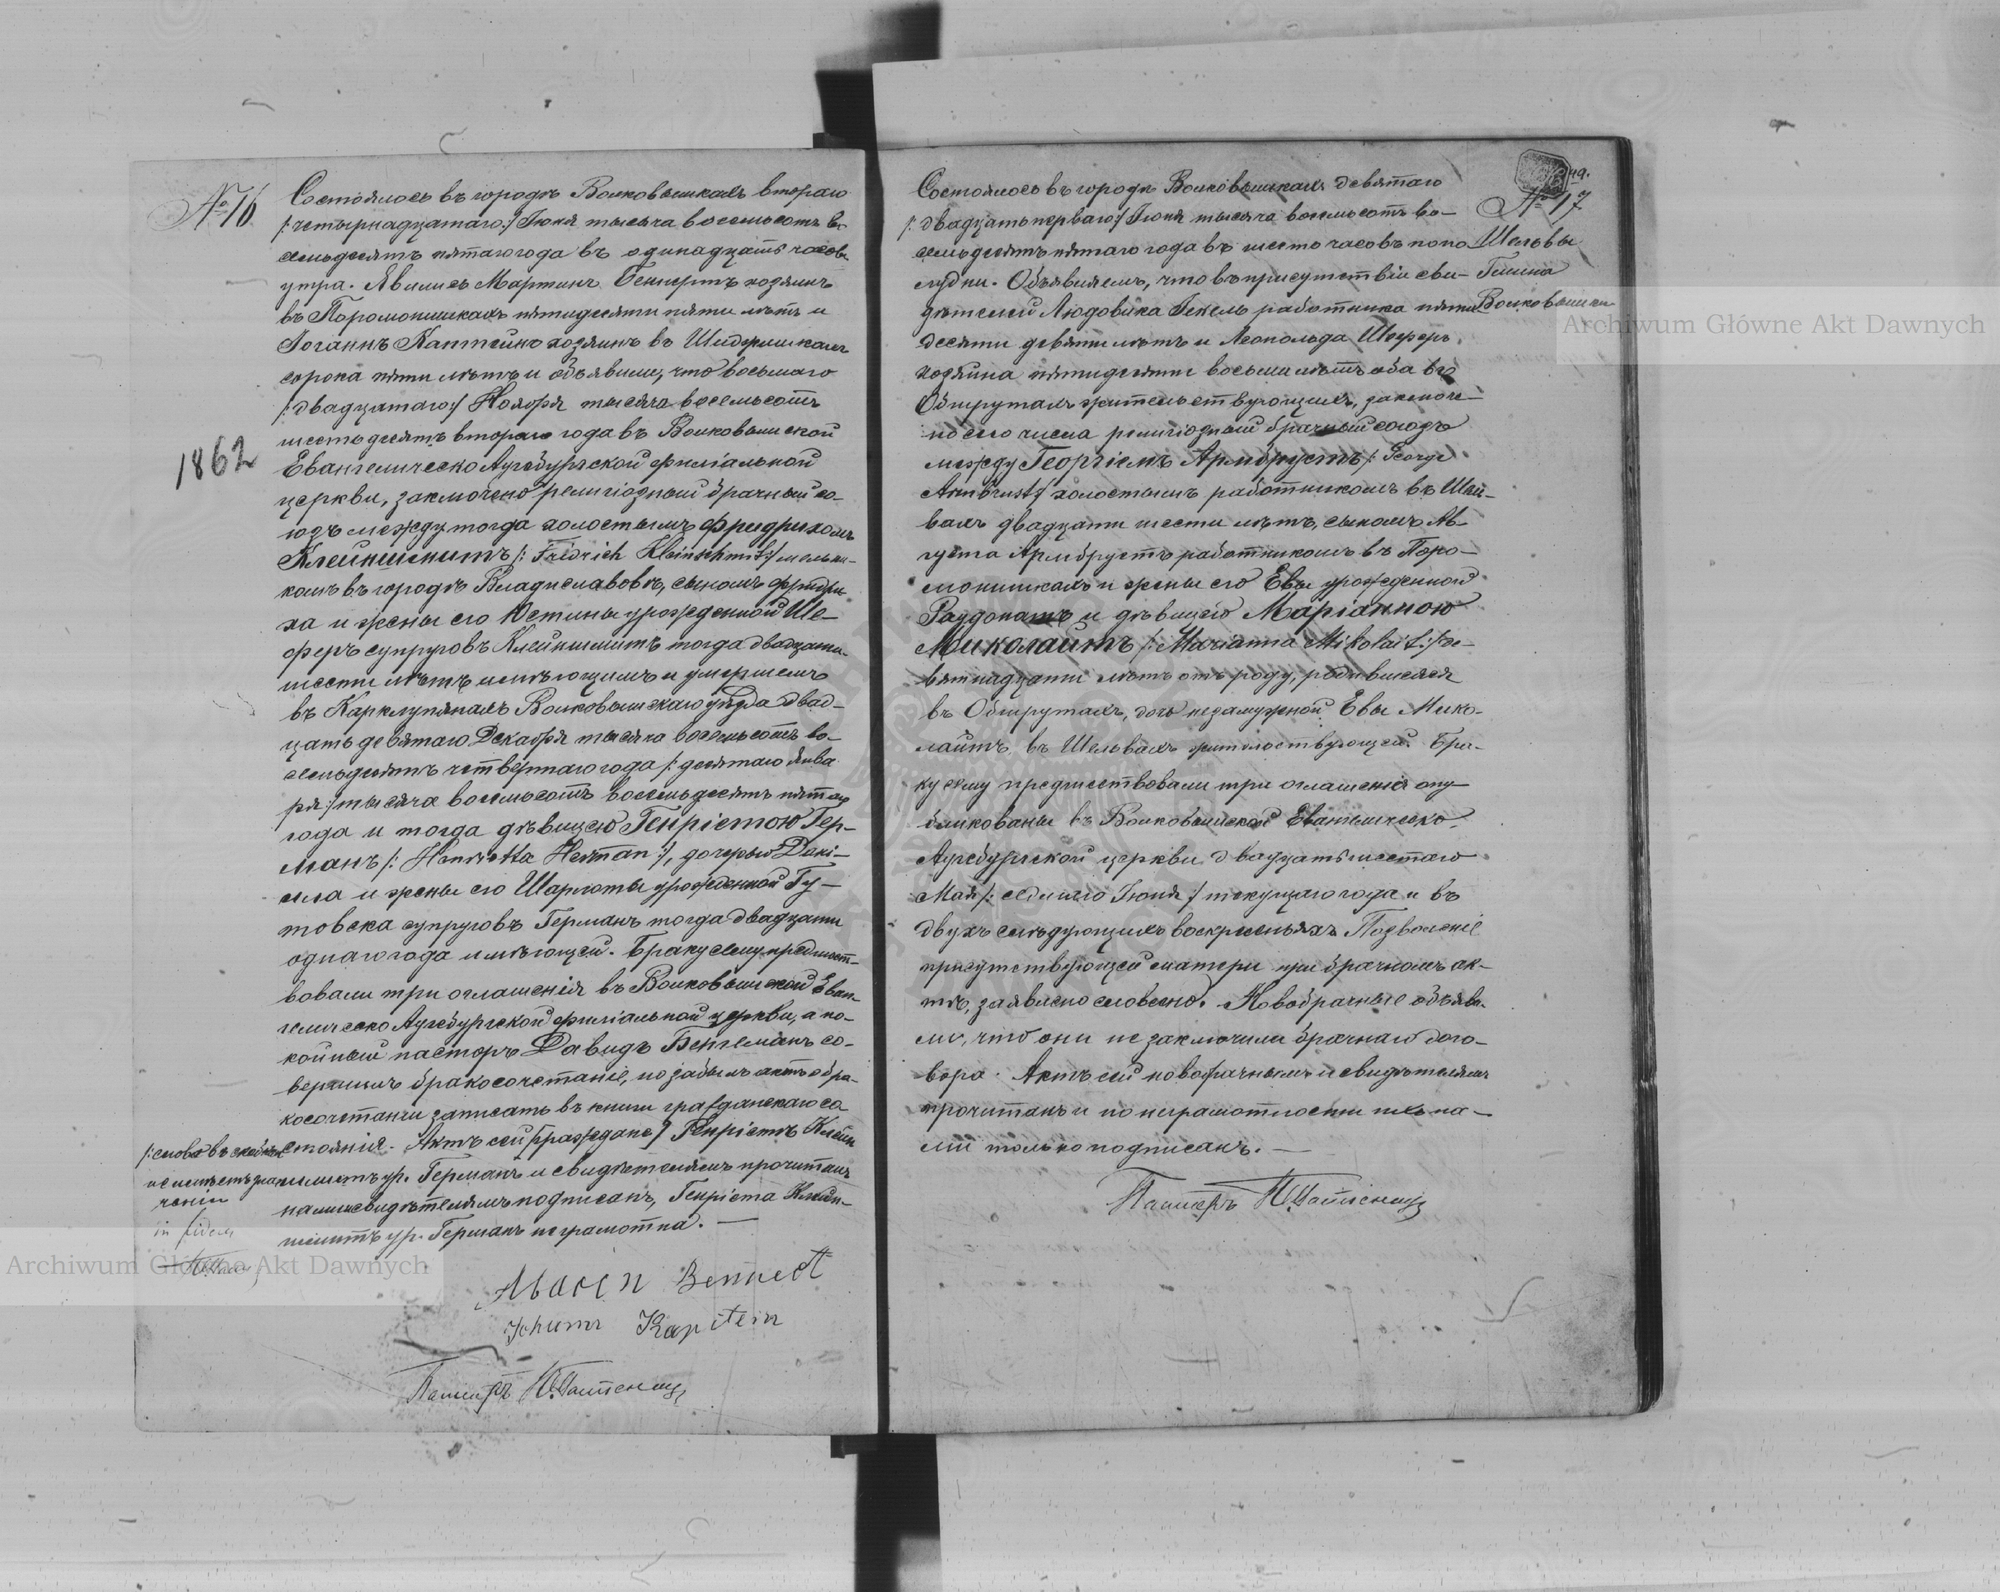 № 16
Состоялось въ городѣ Волковышкахъ втораго
/: четырнадцатаго :/ Іюня тысяча восемьсотъ во
семьдесятъ пятаго года въ одинадцать часовъ
утра. Явились Мартинъ Беннертъ хозяинъ
въ пятидесяти пяти лѣтъ и
Іоганнъ Каптейнъ хозяинъ въ
сорока пяти лѣтъ и объявили, что восьмаго
/: двадцатаго :/ Ноября тысяча восемьсотъ
шестьдесятъ втораго года въ Волковышской
1862
Евангелическо Аугсбургской филіальной
церкви, заключено религіозный брачный со-
юзъ между тогда холостымъ Фридрихомъ
Клейншмитъ /: Fridrich Kleinschmit :/ мельни-
комъ въ городѣ Владиславовѣ, сыномъ Фридри
ха и жены его Юстины урожденной Ше-
феръ супруговъ Клейншмитъ тогда двадцати
шести лѣтъ имѣющимъ и умершемъ
въ Карклупянахъ Волковышскаго уѣзда двад-
цать девятаго Декабря тысяча восемьсотъ во-
семьдесятъ четвертаго года /: десятаго Янва
ря :/ тысяча восемьсотъ восемьдесятъ пятаго
года и тогда дѣвицею Генріетою Гер-
манъ /: Henrietta Herman :/, дочерью Дані-
ила и жены его Шарлоты урожденной Гу-
товска супруговъ Германъ тогда двадцати
одного года имѣющей. Браку сему предшест-
вовали три оглашенія въ Волковышской Еван-
гелическо Аугсбургской филіальной церкви, а по-
койный пасторъ Давидъ со-
вершилъ бракосочетаніе, но забылъ актъ бра-
косочетанія записать въ книги гражданскаго со
стоянія. Актъ сей [гражданс] Генріетѣ Клейн
шмитъ ур. Германъ и свидѣтелямъ прочитанъ
нами и свидѣтелями подписанъ, Генріета Клейн-
шмитъ ур. Германъ неграмотна. —
/: слова въ скобкахъ
не имѣетъ зна
ченія
in fidem
Martin Bennert
Johann Kapitein
Пасторъ
№ 17
Шельвы
Гмина
Волковышки
Состоялось въ городѣ Волковышкахъ девятаго
/: двадцать перваго :/ Іюня тысяча восемьсотъ во-
семьдесятъ пятаго года въ шесть часовъ попо
лудни. Объявляемъ, что въ присутствіи сви-
дѣтелей Людовика Гекель работника пяти
десяти девяти лѣтъ и Леопольда Шеферъ
хозяина пятидесяти восьми лѣтъ оба въ
Обшрутахъ жительствующихъ, заключе-
но сего числа религіозный брачный союзъ
между Георгіемъ Армбрустъ /: George
Armbrust :/ холостымъ работникомъ въ Шель-
вахъ двадцати шести лѣтъ, сыномъ Ав-
густа Армбрустъ работникомъ въ
и жены его Евы урожденной
и дѣвицею Маріанною
Миколаитъ /: Marianna Mikolait :/ де-
вятнадцати лѣтъ отъ роду, родившеюся
въ Обшрутахъ, дочь незамужной Евы Мико-
лаитъ въ Шельвахъ жительствующей. Бра-
ку сему предшествовали три оглашенія опу
бликованы въ Волковышской Евангелическо
Аугсбургской церкви двадцать шестаго
Мая /: седьмаго Іюня :/ текущаго года и въ
двухъ слѣдующихъ воскресеньяхъ. Позволеніе
присутствующей матери при брачномъ ак-
тѣ, заявлено словесно. Новобрачные объяви
ли, что они не заключили брачнаго дого-
вора. Актъ сей новобрачнымъ и свидѣтелямъ
прочитанъ и по неграмотности ихъ на-
ми только подписанъ. —
Пасторъ
Archiwum Główne Akt Dawnych
Archiwum Główne Akt Dawnych